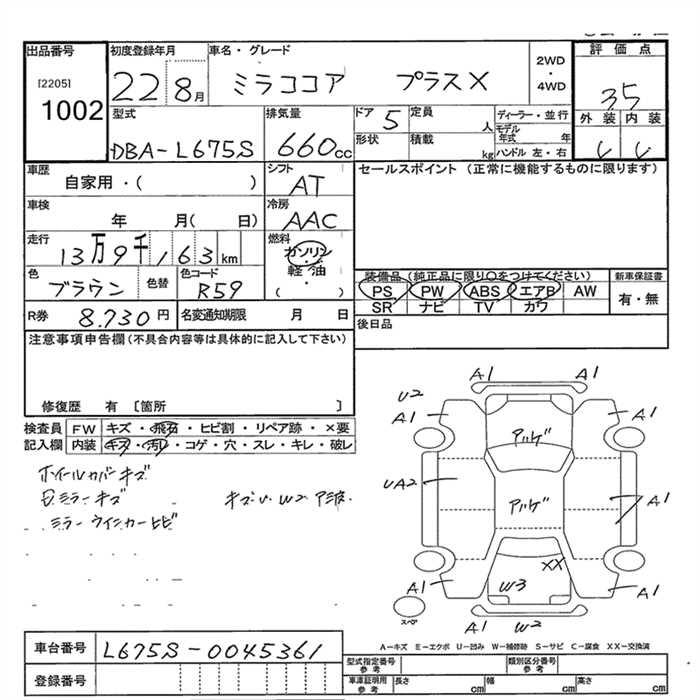 出品番号 初度登録年月 車名・グレード 2WD・4WD 評価点
[2205] 1002 22 8月 ミラココア プラスX 3.5
型式 排気量 ドア 5 定員 人 ディーラー・並行 外装 内装
DBA-L675S 660cc 形状 積載 kg モデル年式 年 ハンドル 左・右
車歴 シフト セールスポイント (正常に機能するものに限ります)
自家用・( ) AT
車検 冷房
年 月( 日) AAC
走行 燃料
13万9千163km ガソリン
色 色替 色コード 軽油
ブラウン R59 ( )
装備品 (純正品に限り○をつけてください) 新車保証書
PS PW ABS エアB AW 有・無
SR ナビ TV カワ
R券 8.730円 名変通知期限 月 日 後日品
注意事項申告欄(不具合内容等は具体的に記入して下さい)
修復歴 有 〔箇所 〕
検査員 FW キズ・飛石・ヒビ割・リペア跡・×要
記入欄 内装 キズ・汚レ・コゲ・穴・スレ・キレ・破レ
ホイールカバーキズ
ミラーキズ キズ W2
ミラーウインカーヒビ
A1 A1
U2
A1 A1
アルゲ
UA2 アルゲ A1
XX
A1 W3 A1
スペア
A1 W2
A-キズ E-エクボ U-凹み W-補修跡 S-サビ C-腐食 XX-交換済
車台番号 L675S-0045361
登録番号
型式指定番号 参考 類別区分番号 参考
車庫証明用 参考 長さ cm 幅 cm 高さ cm